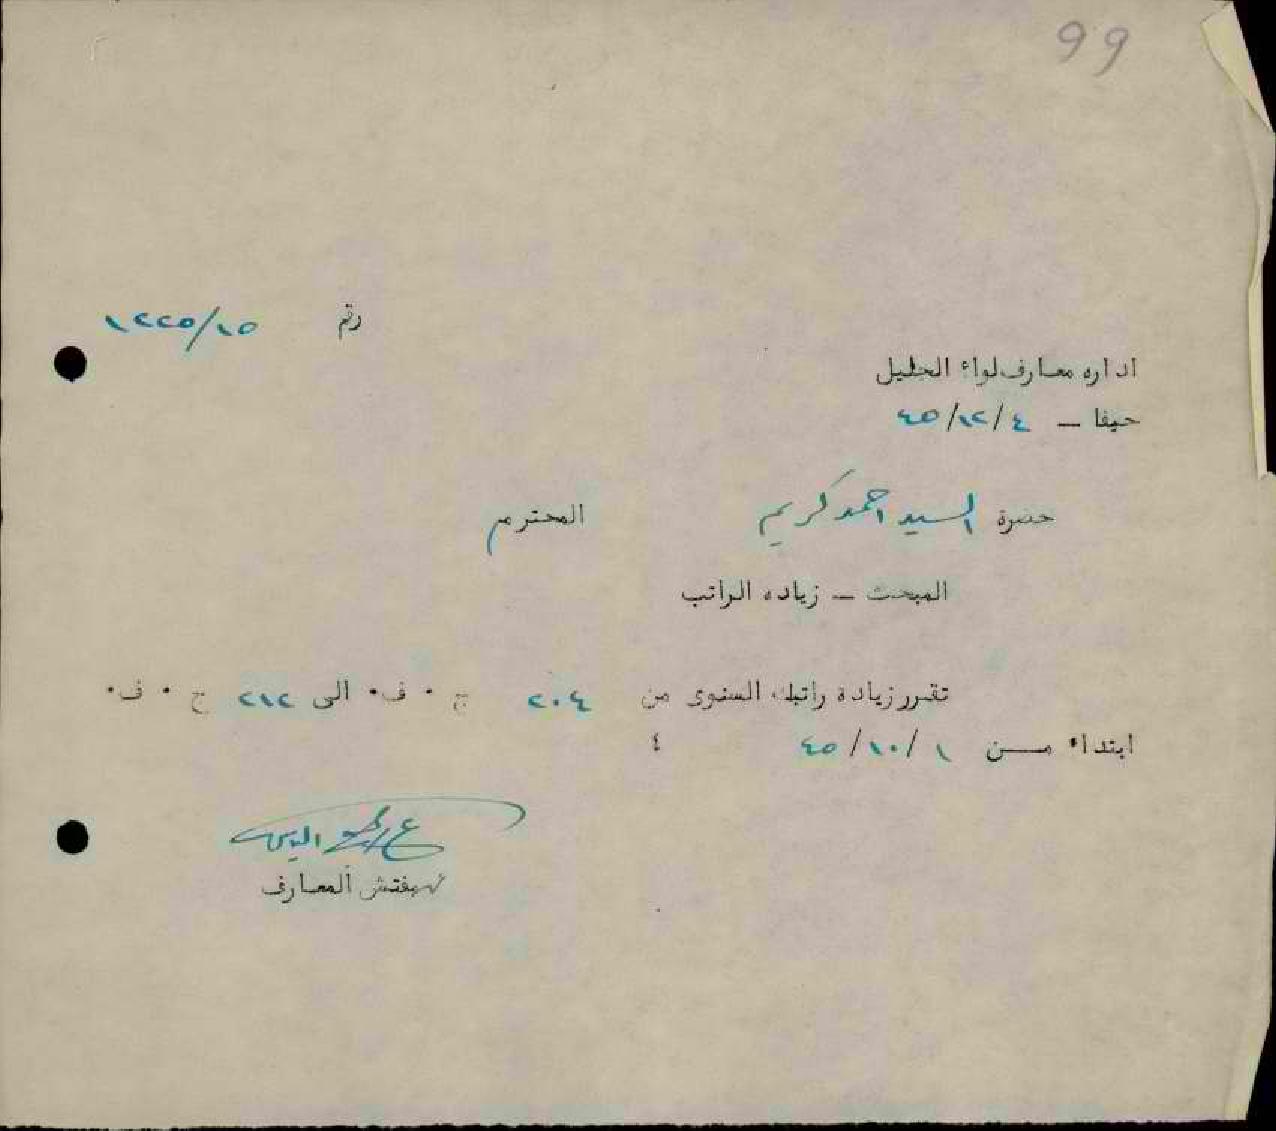 99
رقم ١٢٢٥/١٥
اداره معارف لواء الجليل
حيفا – ٤/١٢/٤٥
حضرة السيد احمد كريم المحترم
المبحث – زياده الراتب
تقرر زيادة راتبك السنوى من ٢٠٤ ج ٠ ف٠ الى ٢١٢ ج ٠ ف٠
ابتداء مــن ١/١٠/٤٥ ٤
مفتش المعارف